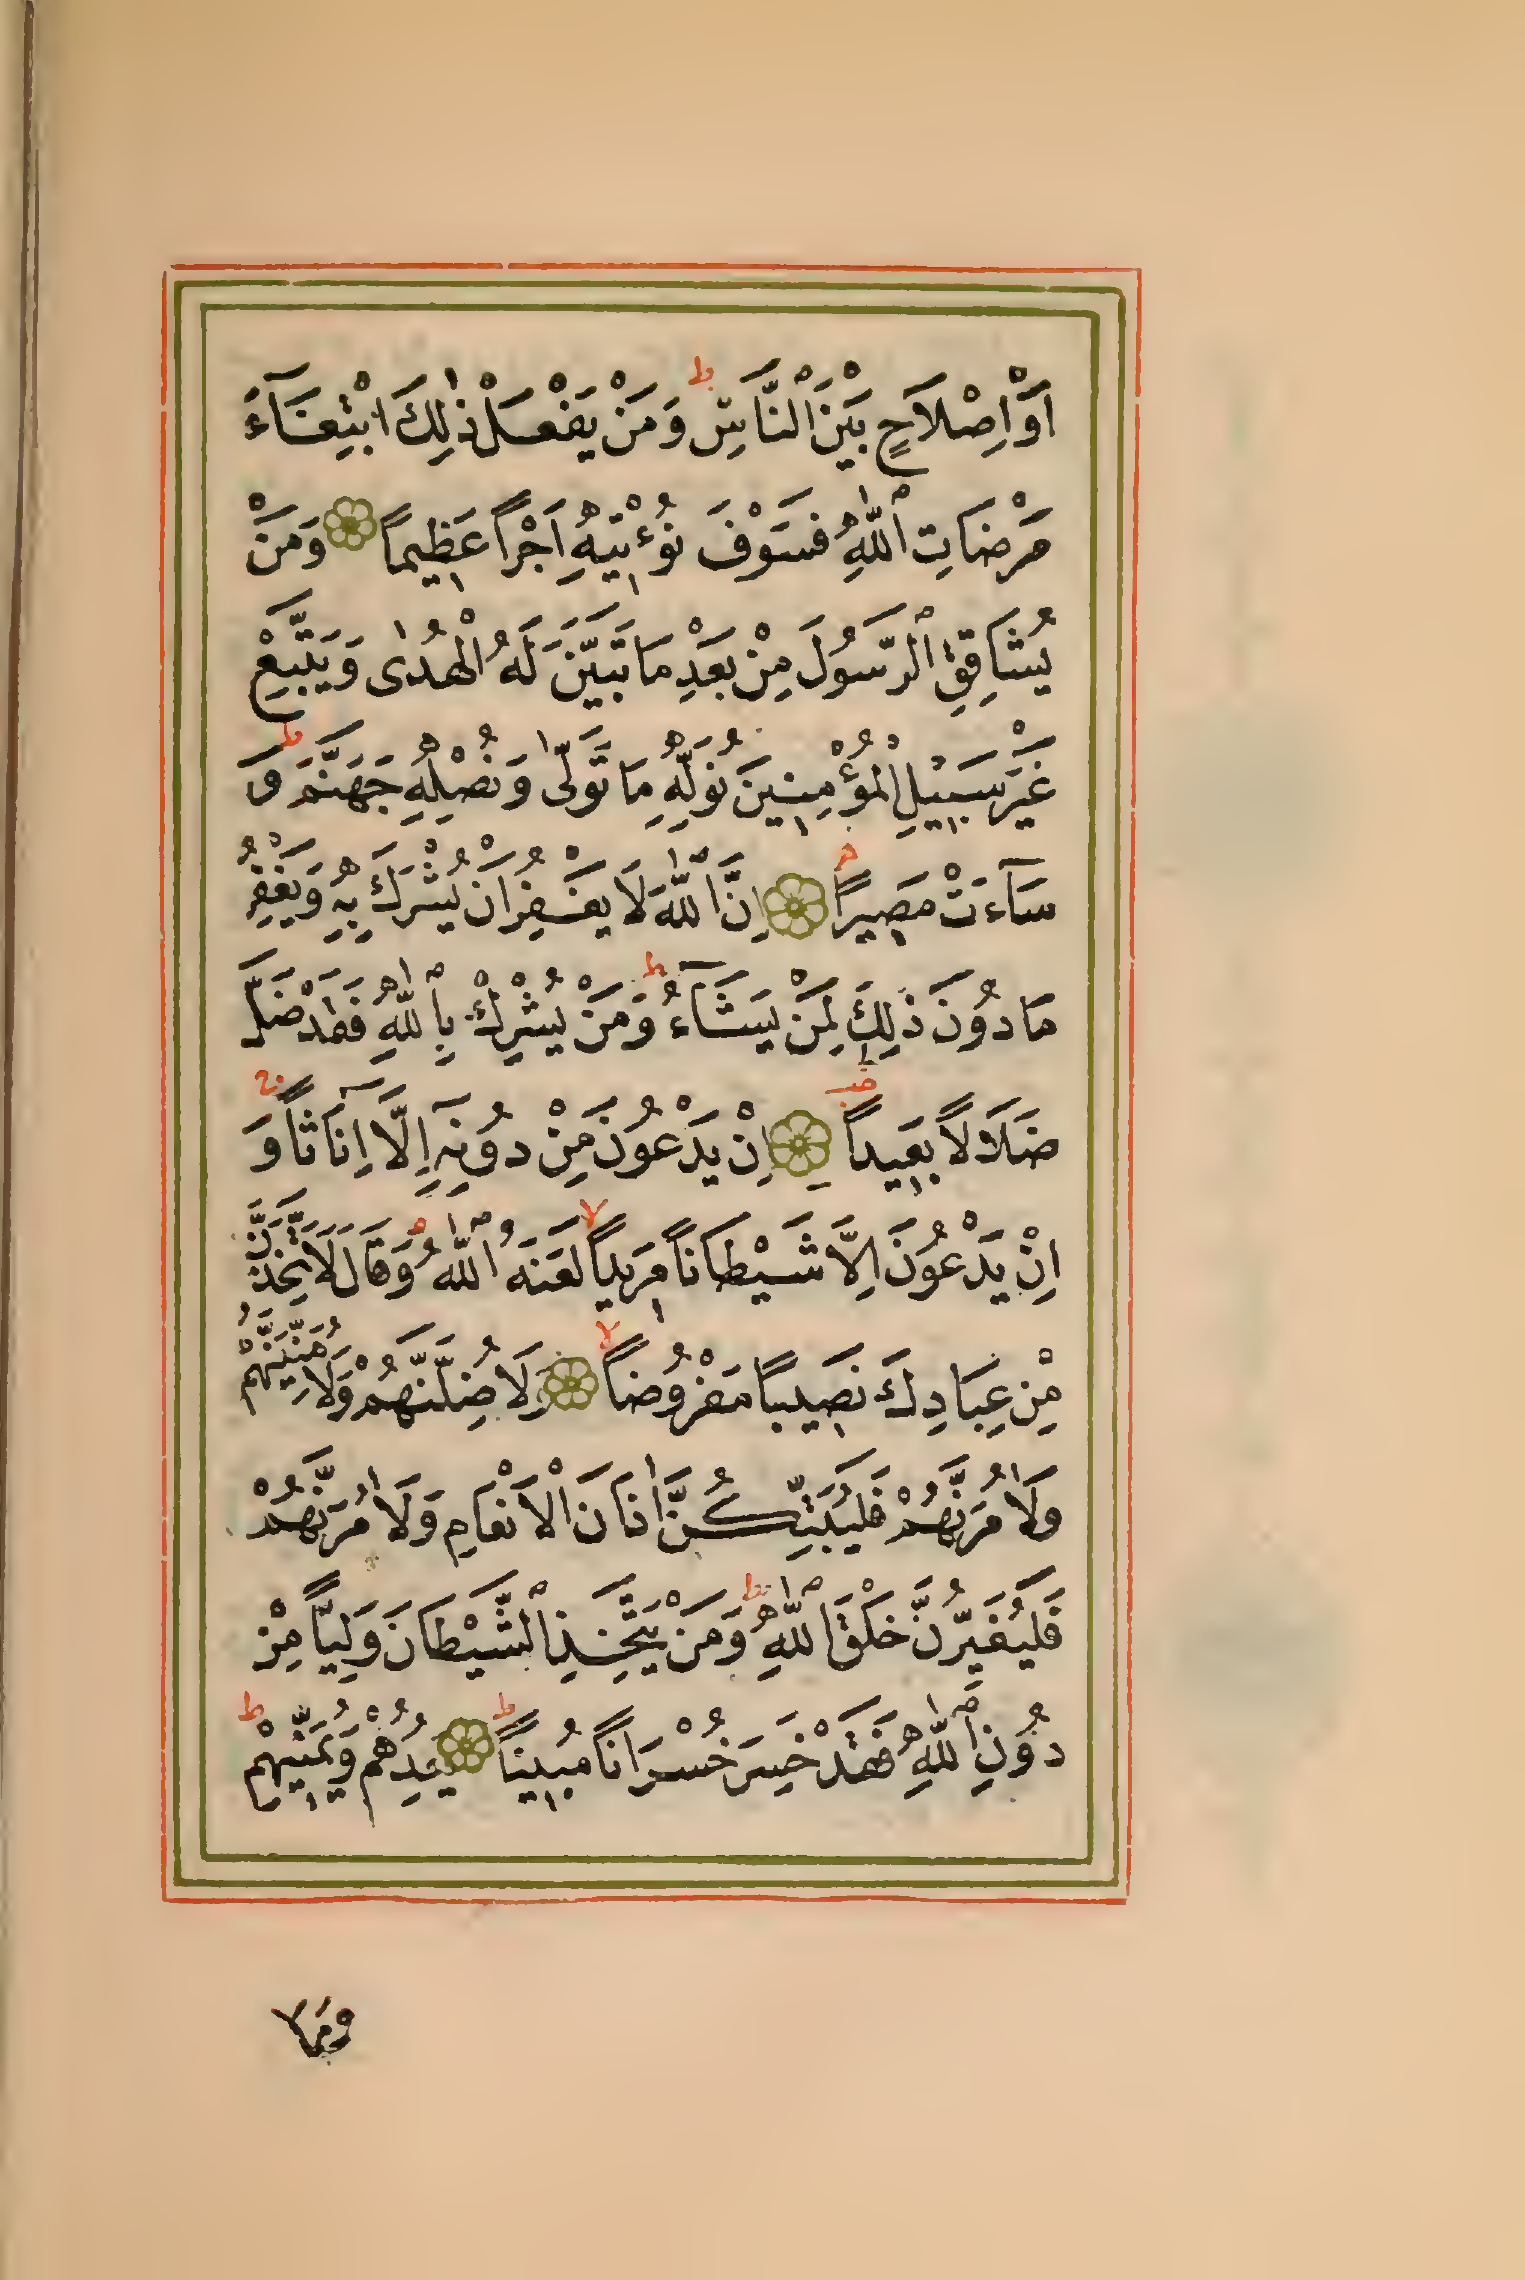 اَوْ اِصْلَاحٍ بَيْنَ النَّاسِ ط وَمَنْ يَفْعَلْ ذٰلِكَ ابْتِغَآءَ
مَرْضَاتِ ٱللّٰهِ فَسَوْفَ نُؤْتِيهِ اَجْرًا عَظِيمًا وَمَنْ
يُشَاقِقِ ٱلرَّسُولَ مِنْ بَعْدِ مَا تَبَيَّنَ لَهُ الْهُدٰى وَيَتَّبِعْ
غَيْرَ سَبِيْلِ الْمُؤْمِنِينَ نُوَلِّهِ مَا تَوَلّٰى وَنُصْلِهِ جَهَنَّمَ ط وَ
سَآءَتْ مَصِيرًا اِنَّ اللّٰهَ لَا يَغْفِرُ اَنْ يُشْرَكَ بِهِ وَيَغْفِرُ
مَا دُونَ ذٰلِكَ لِمَنْ يَشَآءُ ط وَمَنْ يُشْرِكْ بِٱللّٰهِ فَقَدْ ضَلَّ
ضَلَالًا بَعِيدًا اِنْ يَدْعُونَ مِنْ دُونِهِٓ اِلَّٓا اِنَاثًا وَ
اِنْ يَدْعُونَ اِلَّا شَيْطَانًا مَرِيدًا لا لَعَنَهُ ٱللّٰهُ م وَقَالَ لَاَتَّخِذَنَّ
مِنْ عِبَادِكَ نَصِيبًا مَفْرُوضًا لا وَلَاُضِلَّنَّهُمْ وَلَاُمَنِّيَنَّهُمْ
وَلَاٰمُرَنَّهُمْ فَلَيُبَتِّكُنَّ اٰذَانَ الْاَنْعَامِ وَلَاٰمُرَنَّهُمْ
فَلَيُغَيِّرُنَّ خَلْقَ اللّٰهِ ط وَمَنْ يَتَّخِذِ ٱلشَّيْطَانَ وَلِيًّا مِنْ
دُونِ ٱللّٰهِ فَقَدْ خَسِرَ خُسْرَانًا مُبِينًا ط يَعِدُهُمْ وَيُمَنِّيهِمْ ط
وَمَا